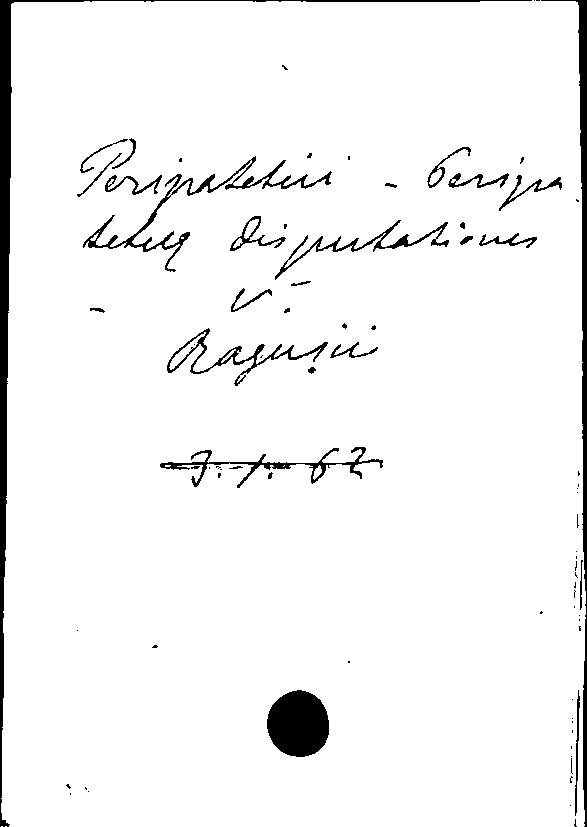 Peripatetici - Peripa
teticę disputationes
- V. -
Ragusii
3. 1. 67